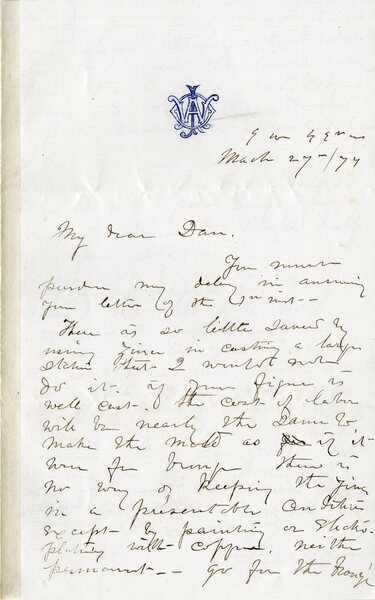 March 27-/74
My dear Dan.
You must
pardon my delay in answering
your letter of the 1st inst--
There is so little saved by
using Zinc in casting a large
statue that I would not
do it. if your figure is
well cast. the cost of labor
will be nearly the same to
make the mold as if it
were for bronze there is
no way of keeping the zinc
in a presentable condition
except by painting or Electro
plating with copper. neither
permanent-- go for the bronze